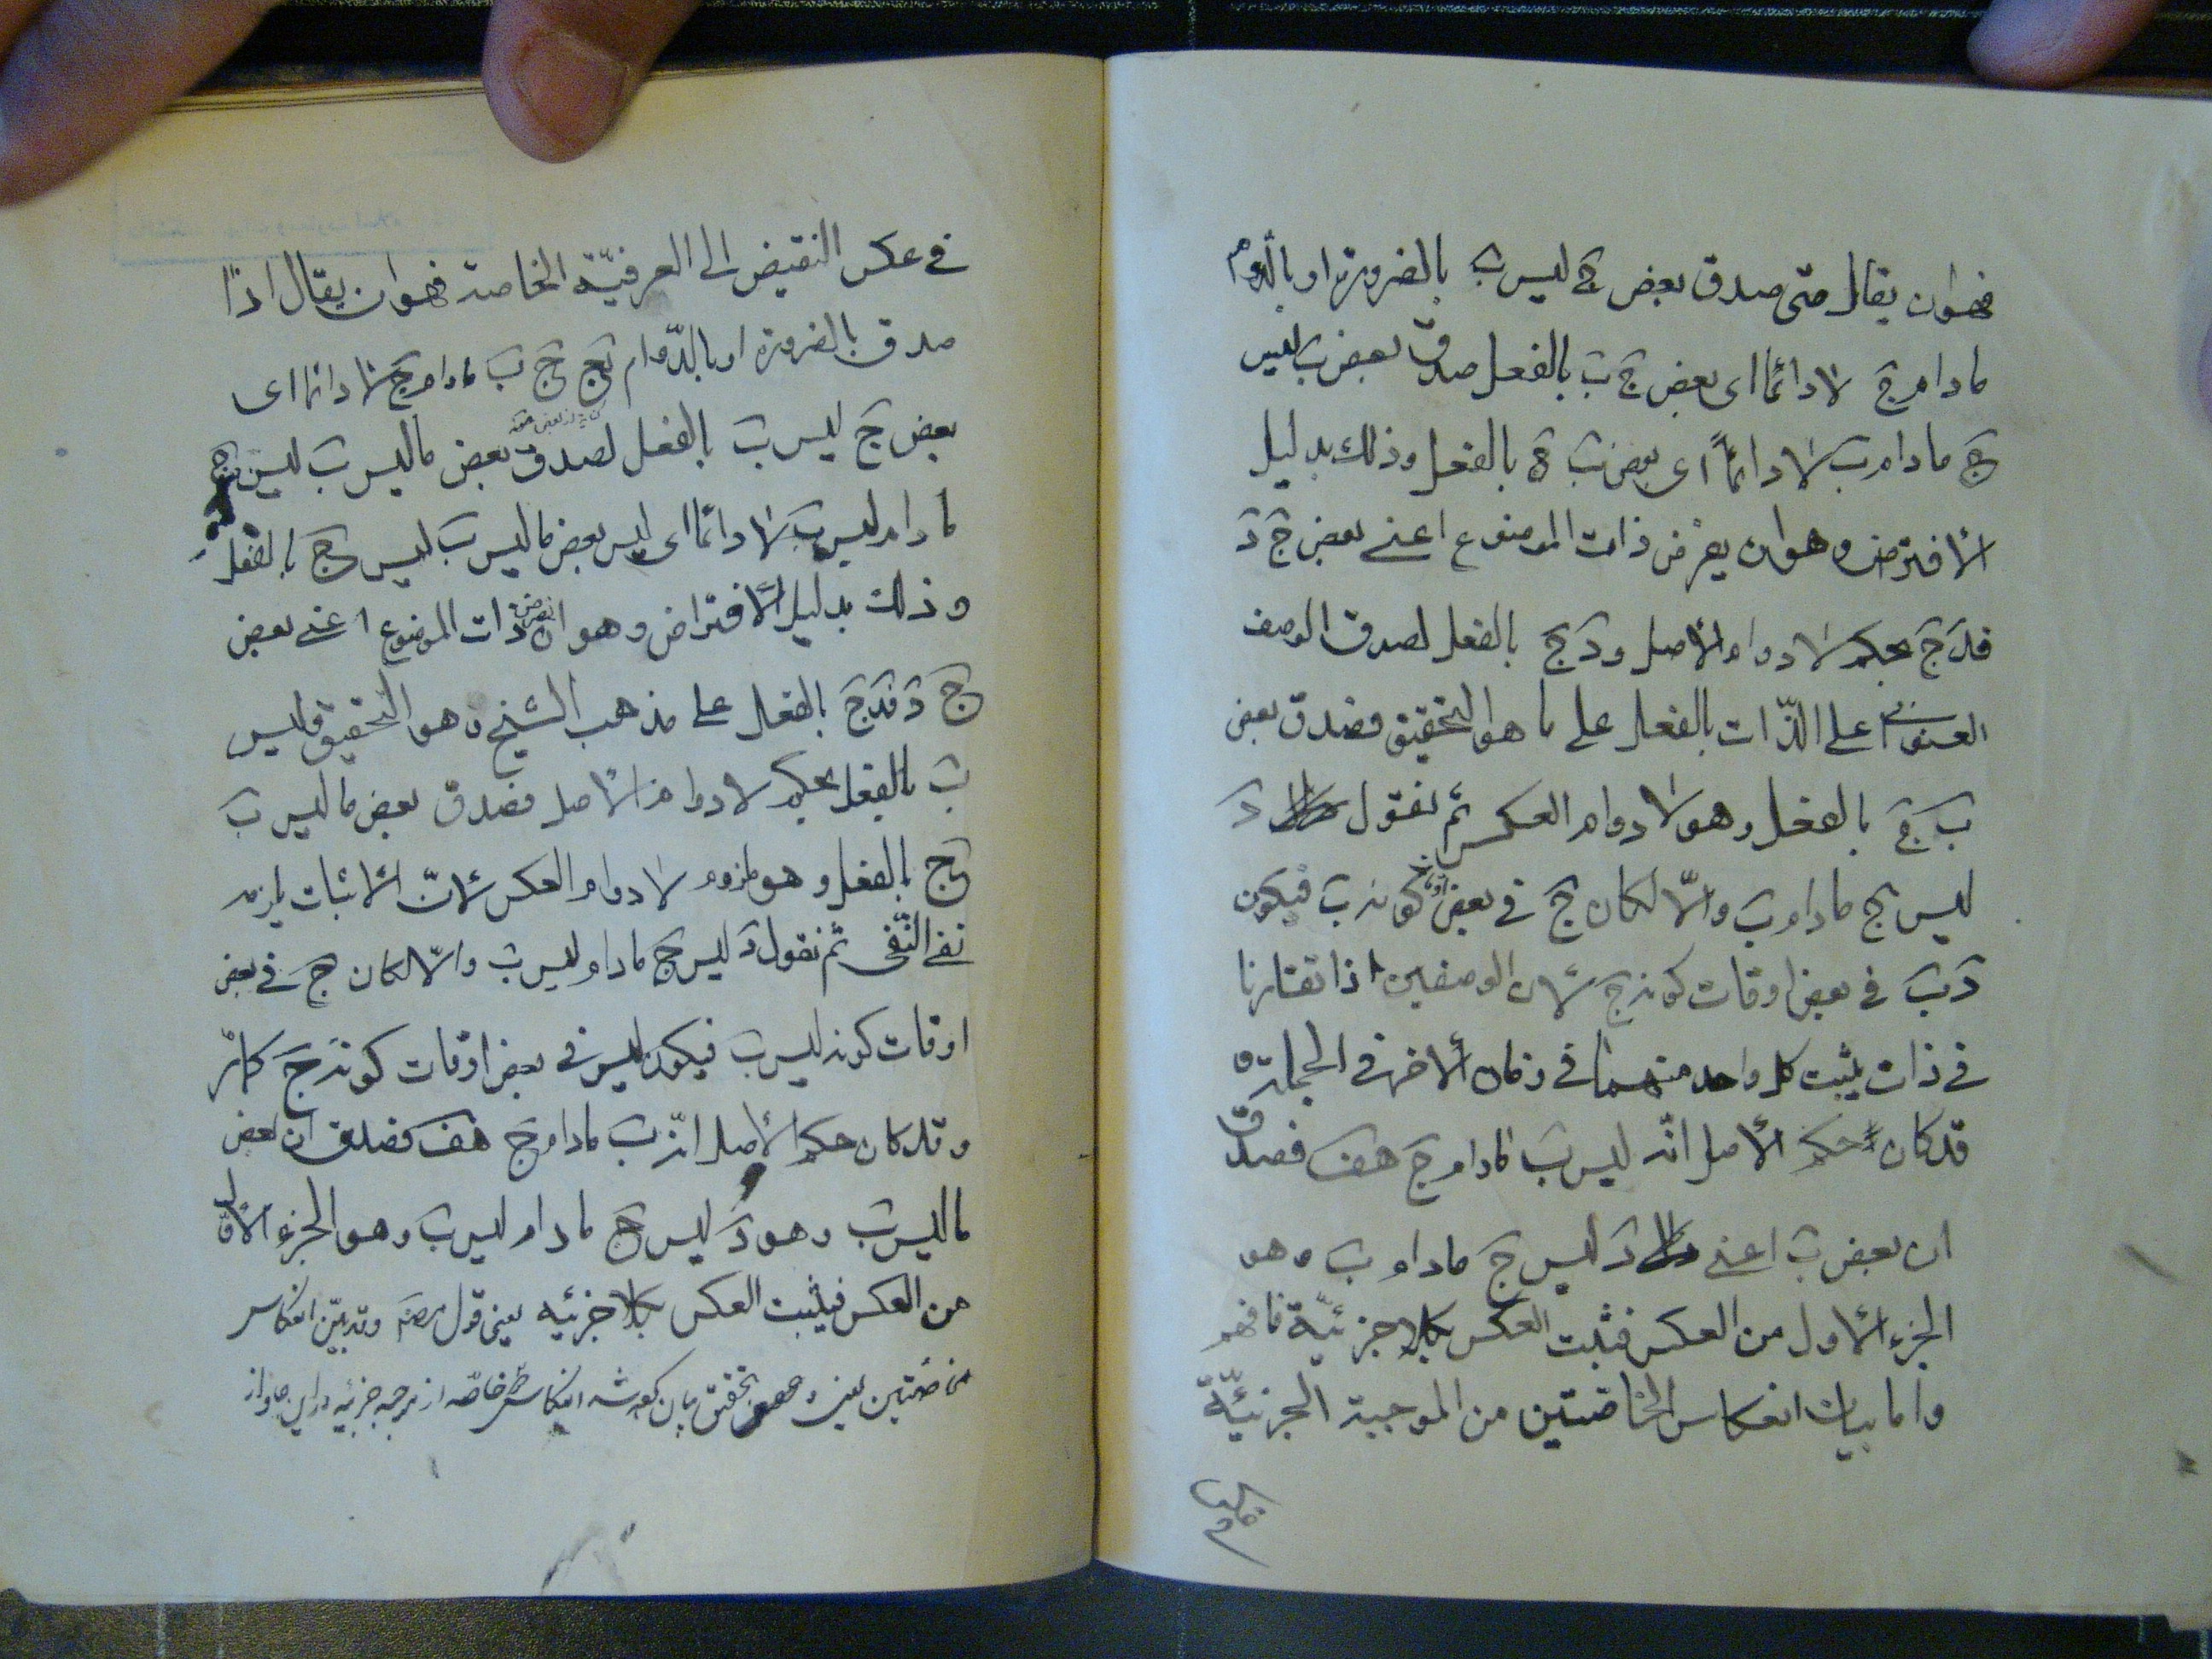 فهوان يقال متى صدق بعض ج ليس ب بالضرورة او بالدوام
مادام ج لا دائما اى بعض ج ب بالفعل صدق بعض ب ليس
ج مادام ب لا دائماً اى بعض ب ج بالفعل وذلك بدليل
الأفتراض وهو ان يفرض ذات الموضوع اعنى بعض ج د
فدج بحكم لا دوام الأصل ود ج بالفعل لصدق الوصف
العنوانى على الذّات بالفعل على ما هو التحقيق فصدق بعض
ب ج بالفعل وهو لا دوام العكس ثم نقول د
ليس ج مادام ب والّا لكان ج فى بعض اوقات كونه ب فيكون
د ب فى بعض اوقات كونه ج لأن الوصفين اذا تقارنا
فى ذات يثبت كل واحد منهما فى زمان الأخر فى الجملة و
قد كان حكم الأصل انّه ليس ب مادام ج هف فصدق
ان بعض ب اعنى د ليس ج مادام ب وهو
الجزء الأول من العكس فثبت العكس بكلا جزئيّة فافهم
واما بيان انعكاس الخاصّتين من الموجبة الجزئيّة
فى عكس النقيض الى العرفيّة الخاصة فهو ان يقال اذا
صدق بالضرورة او بالدّوام بعض ج ب مادام ج لا دائما اى
بعض ج ليس ب بالفعل لصدق بعض ماليس ب ليس ج
مادام ليس ب لا دائما اى ليس بعض ماليس ب ليس ج بالفعل
وذلك بدليل الأفتراض وهو ان يفرض ذات الموضوع اعنى بعض
ج د فدج بالفعل على مذهب الشيخ وهو التحقيق وليس
ب بالفعل بحكم لا دوام الأصل فصدق بعض ماليس ب
ج بالفعل وهو ملزوم لا دوام العكس لأنّ الأثبات يلزمه
نفى النّفى ثم نقول د ليس ج مادام ليس ب والّا لكان ج فى بعض
اوقات كونه ليس ب فيكون ليس ب فى بعض اوقات كونه ج كما مرّ
وقد كان حكم الأصل انّه ب مادام ج هف فصدق ان بعض
ماليس ب وهو د ليس ج مادام ليس ب وهو الجزء الأول
من العكس فيثبت العكس بكلا جزئيه يعنى قول مصنف وقد بيّن انعكاس
خاصّتين يعنى بتحقيق بيان كرده شد انعكاس خاصّه از موجبه جزئيه